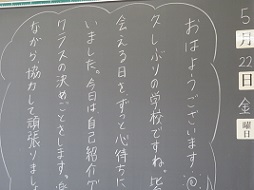 5月22日金曜日
おはようございます
久しぶりの学校ですね。
会える日を、ずっと心待ちに
いました。今日は、自己紹介や
クラスの決めごとをします。
ながら、協力して頑張りまし